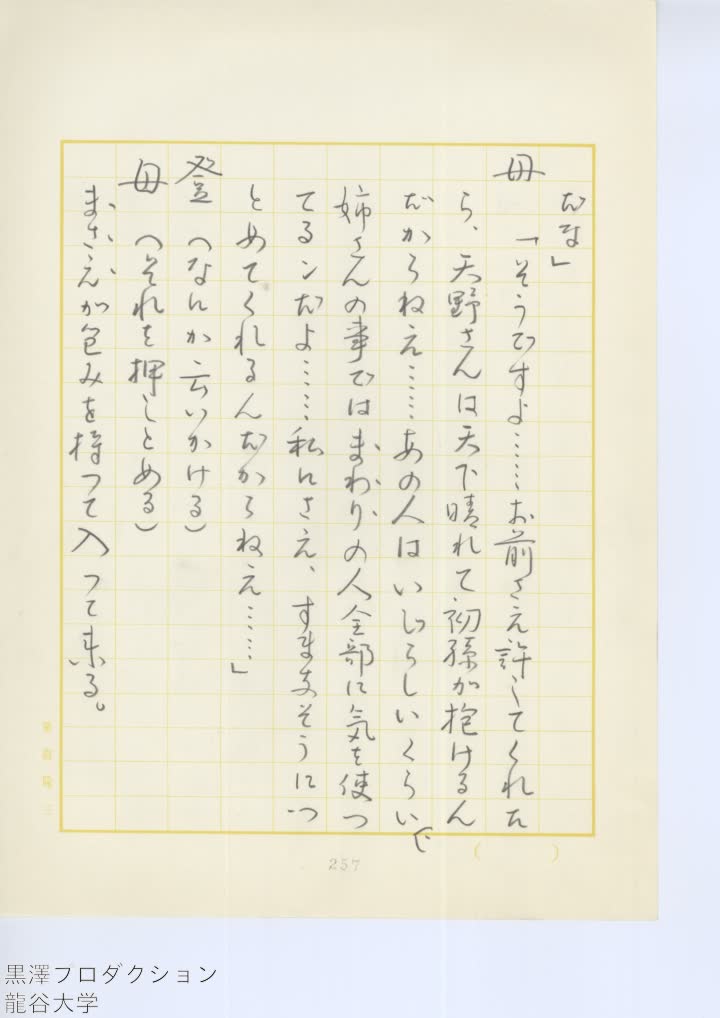 だな」
母　「そうですよ……お前さえ許してくれた
ら、天野さんは天下晴れて初孫が抱けるん
だからねえ……あの人はいじらしいくらいで
姉さんの事ではまわりの人全部に気を使っ
てるンだよ……私にさえ、すまなそうにつ
とめてくれるんだからねえ……」
登　（なにか云いかける）
母　（それを押しとめる）
まさえが包みを持って入って来る。
257
黒澤プロダクション
龍谷大学